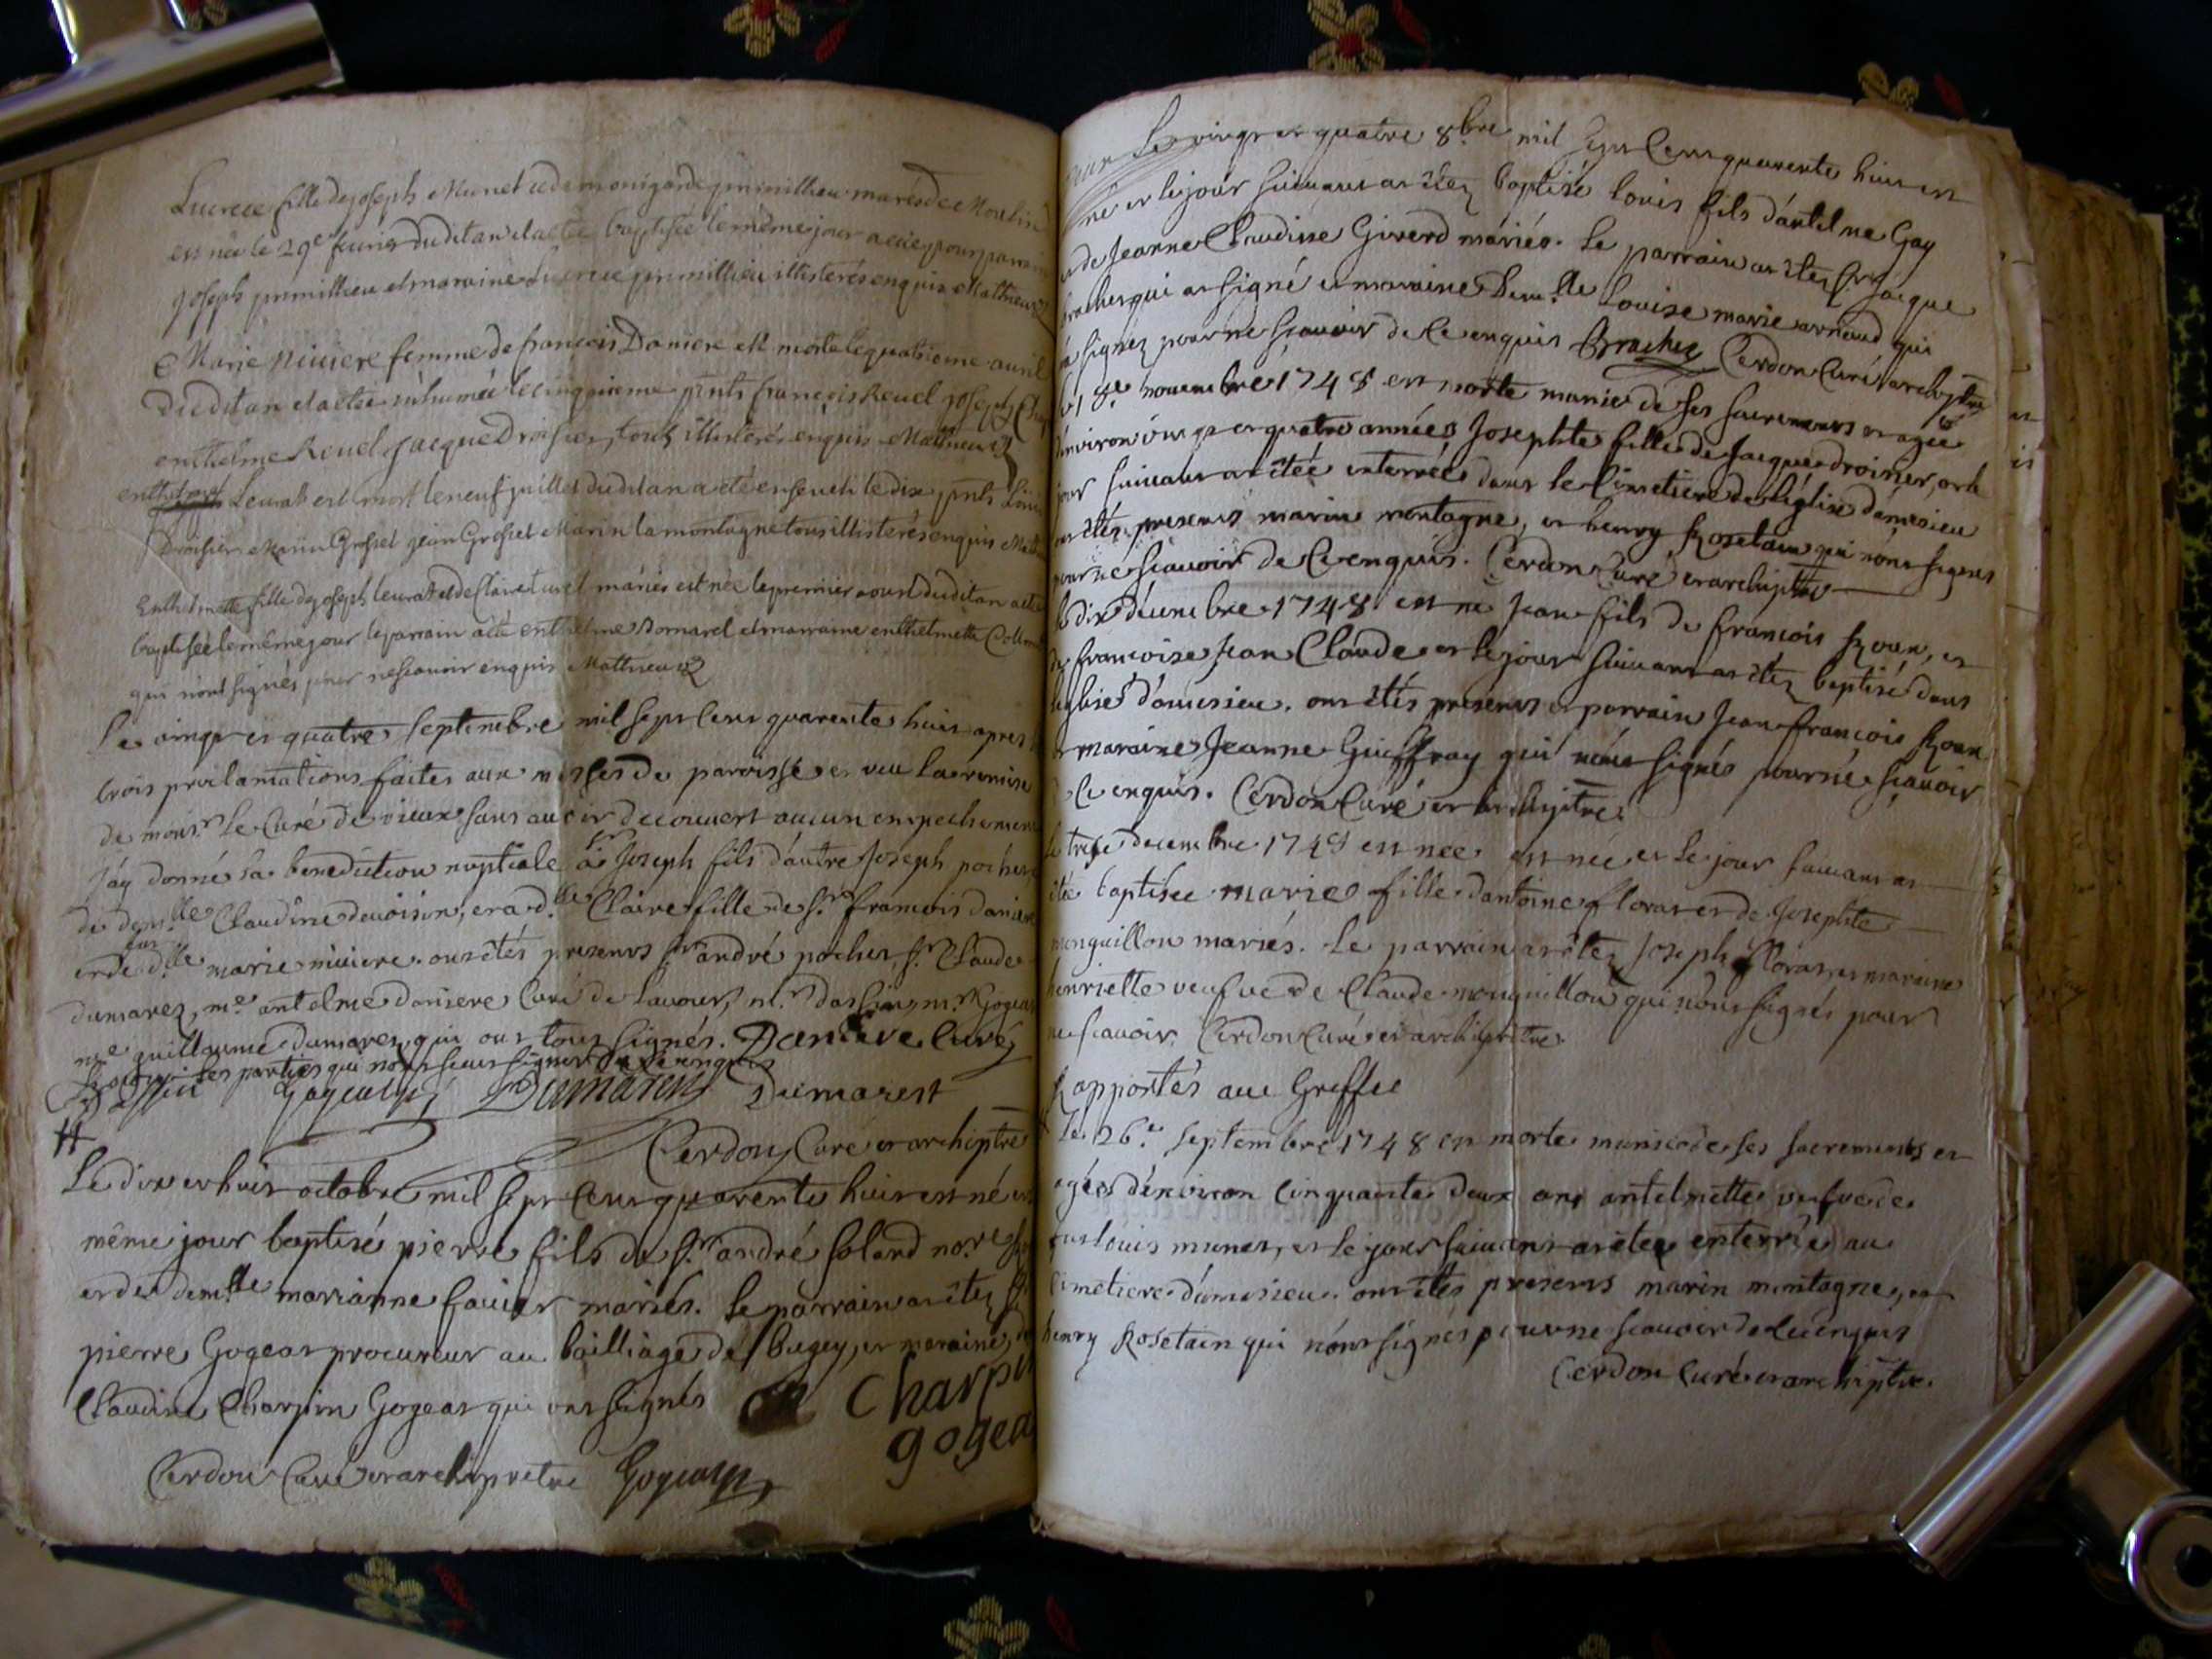 Lucrece fille de joseph Munet et de monigarde primillieu mariés de Moulin
est née le 29e feurier dudit an et a ete baptisée le même jour a eu pour parrain
joseph primillieu et maraine Lucrece primillieu illisterés enquis Mathieu
Marie Niuiere femme de francois Daniere est morte le quatrieme auril
dudit an et a ete inhumée le cinquieme pnts francois Reuel joseph
enthelme Reuel jacque Droisier, tous illisterés enquis Mathieu
Leurat est mort le neuf juillet dudit an a été enseueli le dix pnts Louis
Droisier Marin Grosset jean Grosset Marin lamontagne tous illisterés enquis
Enthelmette fille de joseph leurat et de Claire mariés est née le premier aoust dudit an a ete
baptisée le même jour le parrain a été enthelme Bornarel et marraine enthelmette
qui n'ont signés pour ne scauoir enquis Mathieu
Le vingt et quatre septembre mil sept cent quarente huit apres
trois proclamations faites aux messes de paroisse et veu la remise
de monsr le Curé de vieux sans auoir decouvert aucun enpechement
j'ay donné la benediction nuptiale a sr Joseph fils d'autre Joseph pochet
de demlle Claudine deuoisin, et a dlle Claire fille de sr francois daniere
et de fut dlle marie niuiere. ont étés presents sr andré pochet, sr Claude
dumarez, me antelme daniere Curé de Lauours, mr dassin, mr gogeat
me guillaume dumarez qui ont tous signés. Daniere Curé
les parties qui n'ont sceus signer de ce enquis
Dassin Gogeat Dumarest Dumarest
Cerdon Curé et archiptre
Le dix et huit octobre mil sept cent quarente huit est né et
même jour baptisé pierre fils de sr andré soland nore
et de demlle marianne fauier mariés. le parrain a étez sr
pierre Gogeat procureur au bailliage de bugey, et maraine
Claudine Charpin Gogeat qui ont signés C Charpin
gogea
Cerdon Curé et archiprêtre Gogeat
Le vingt et quatre 8bre mil sept cent quarente huit est
né et le jour suiuant a étez baptisé louis fils d'antelme Gay
et de Jeanne Claudine Giverd mariés. le parrain a étez sr jacque
brachet qui a signé et maraine Demlle Louise marie arnaud qui
signez pour ne scauoir de ce enquis Brachet Cerdon Curé archiptre
8e nouembre 1748 est morte munie de ses sacrements et agée
d'environ vingt et quatre années Josephte fille de Jacque droisier, et le
jour suiuant a étée enterrée dans le Cimetiere de l'eglise d'amesieu
ont étés presents marin montagne, et henry Rosetain qui n'ont signés
pour ne scauoir de ce enquis. Cerdon Curé et archiptre
le dix decembre 1748 est né jean fils de francois Roux, et
de francoise jean Claude et le jour suiuant a étez baptisé dans
l'eglise d'amesieu. ont étés presents et parrain jean francois Roux
et maraine Jeanne Guiffray qui n'ont signés pour ne scauoir
de ce enquis. Cerdon Curé et archiptre.
le treise decembre 1748 est nee est née et le jour suiuant a
été baptisée marie fille d'antoine floras et de Josephte
monguillon mariés. le parrain a étez Joseph floras, et maraine
henriette veufue de Claude monguillon qui n'ont signés pour
ne scauoir. Cerdon Curé et archiprêtre.
Rapportés au Greffe
Le 26e septembre 1748 est morte munie de ses sacrements et
agée d'environ cinquante deux ans antelmette veufve de
fut louis munet, et le jour suiuant a étez enterrée au
Cimetiere d'amesieu. ont étés presents marin montagne, et
henry Rosetain qui n'ont signés pour ne scauoir de ce enquis
Cerdon Curé et archiptre.